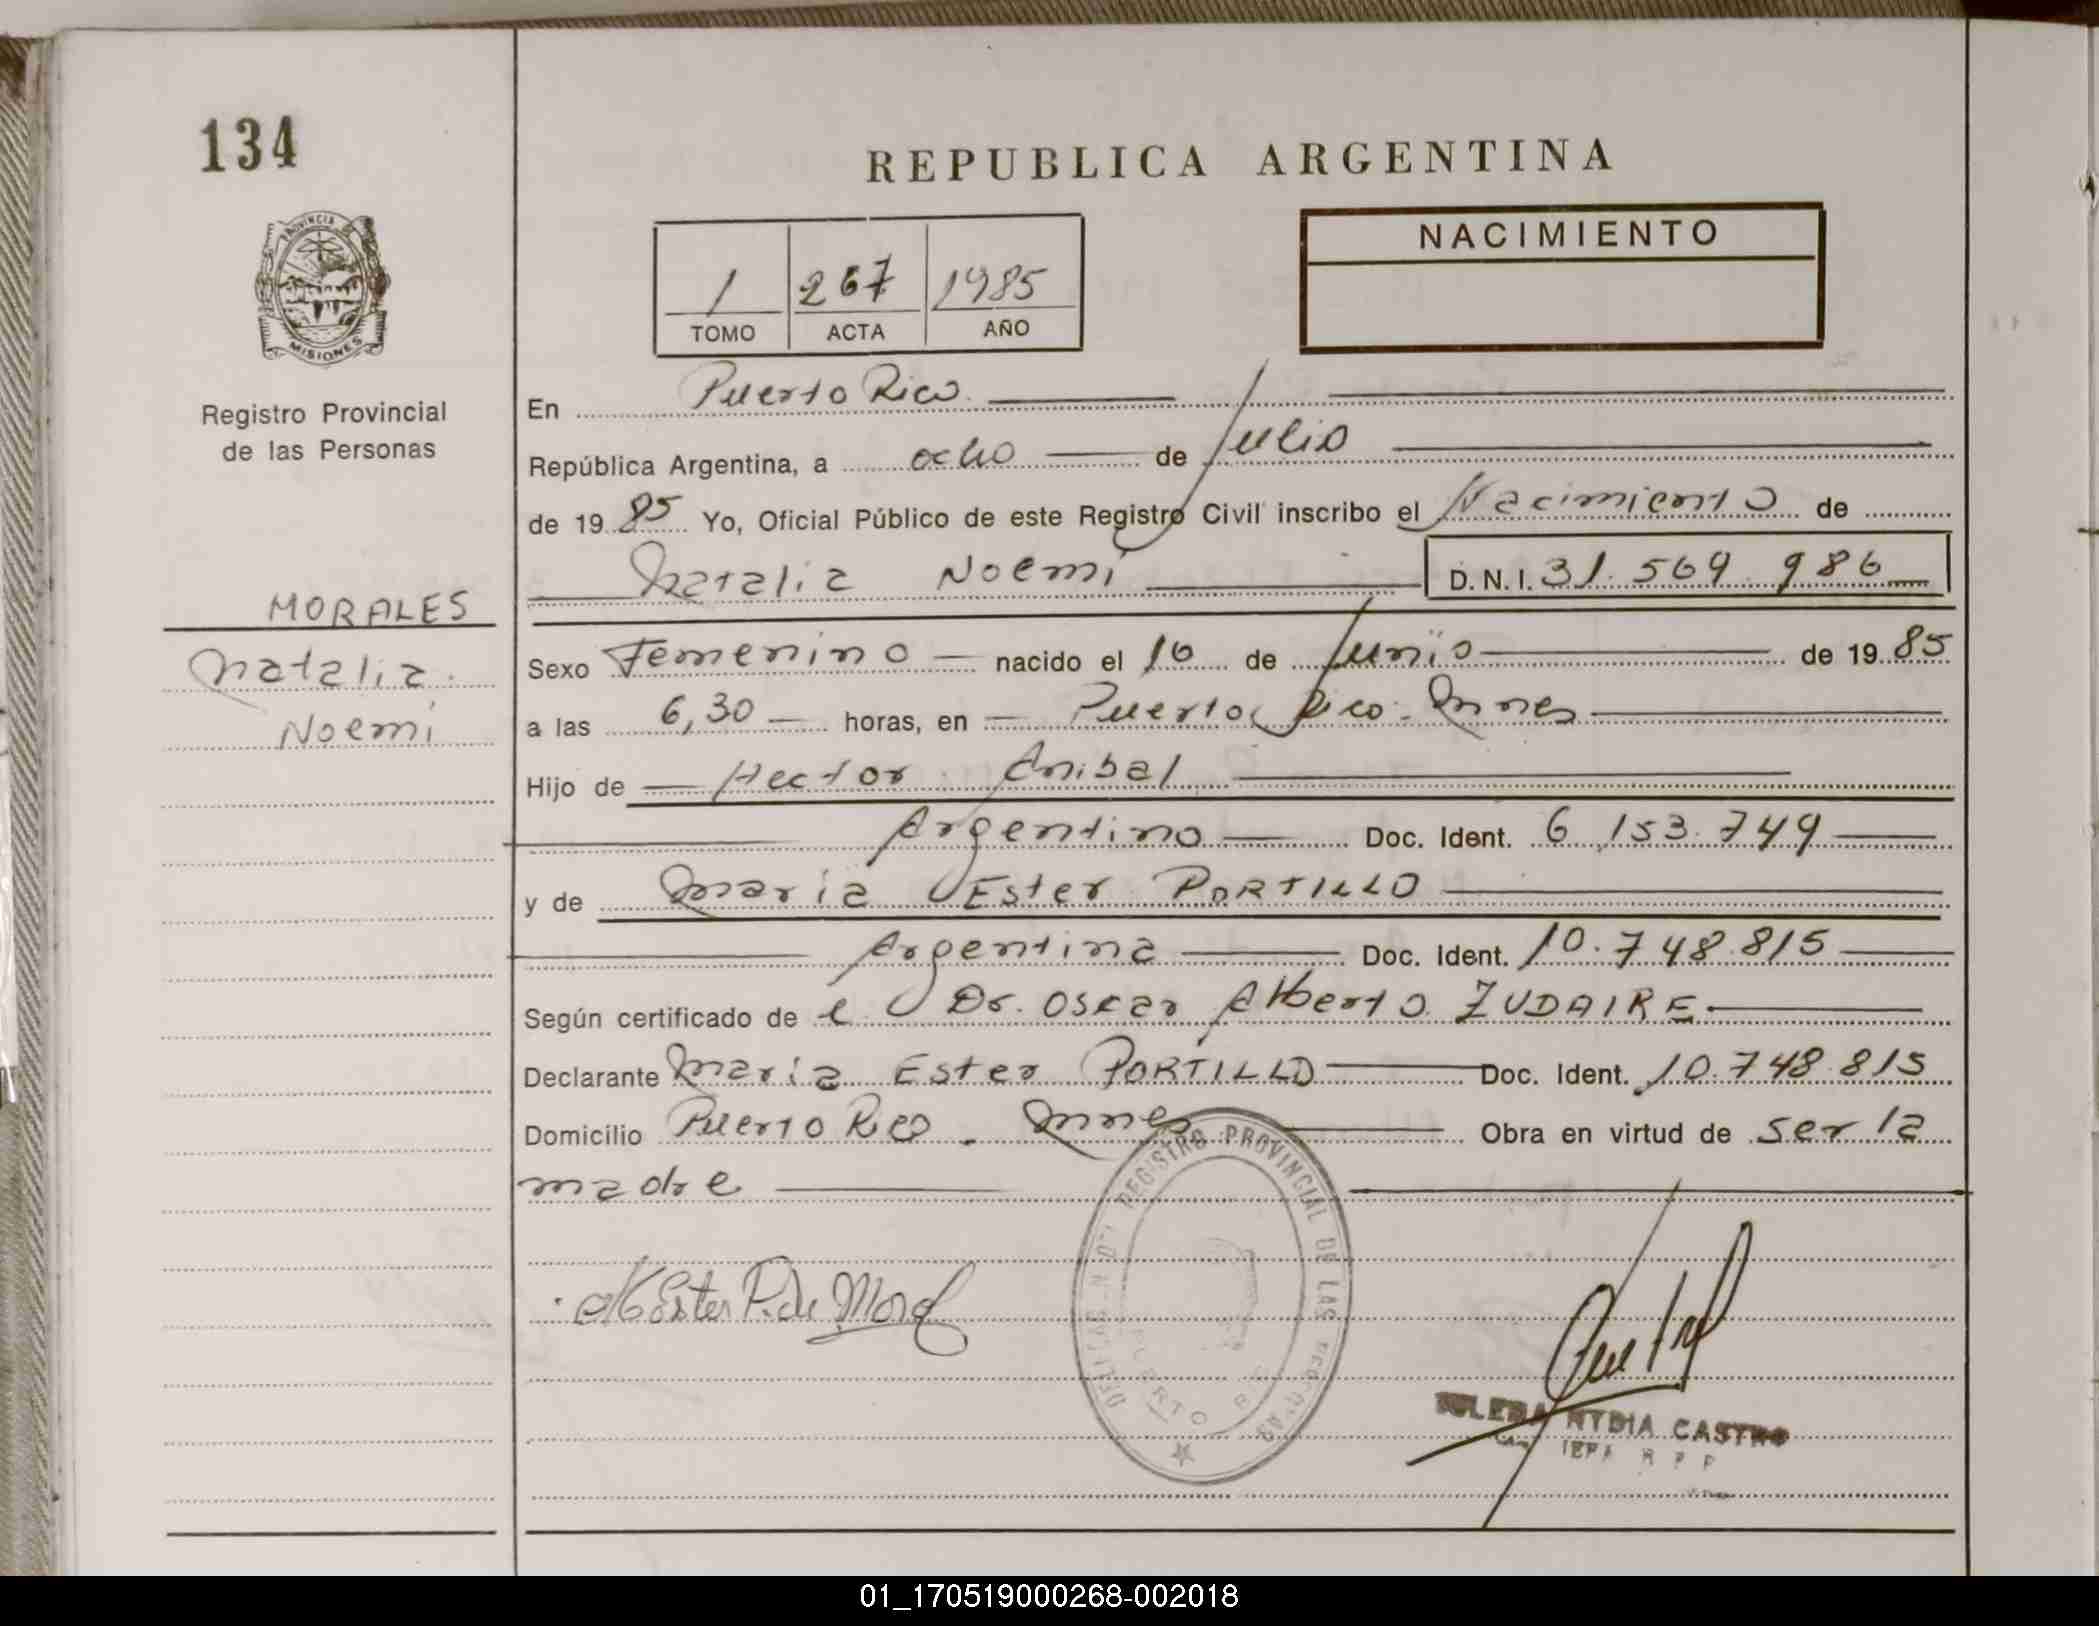 134
REPUBLICA ARGENTINA
PROVINCIA
MISIONES
Registro Provincial
de las Personas
MORALES
Natalia
Noemi
1 267 1985
TOMO ACTA AÑO
NACIMIENTO
En Puerto Rico
República Argentina, a ocho de Julio
de 1985 Yo, Oficial Público de este Registro Civil inscribo el Nacimiento de
Natalia Noemi D.N.I. 31.569.986
Sexo Femenino nacido el 16 de Junio de 1985
a las 6,30 horas, en Puerto Rico. Mnes
Hijo de Hector Anibal
Argentino Doc. Ident. 6.153.749
y de Maria Ester PORTILLO
Argentina Doc. Ident. 10.748.815
Según certificado de el Dr. Oscar Alberto ZUDAIRE
Declarante Maria Ester PORTILLO Doc. Ident. 10.748.815
Domicilio Puerto Rico. Mnes Obra en virtud de ser la
madre
REGISTRO PROVINCIAL DE LAS PERSONAS
PUERTO RICO
M Ester P. de Moral
CASTRO
01_170519000268-002018